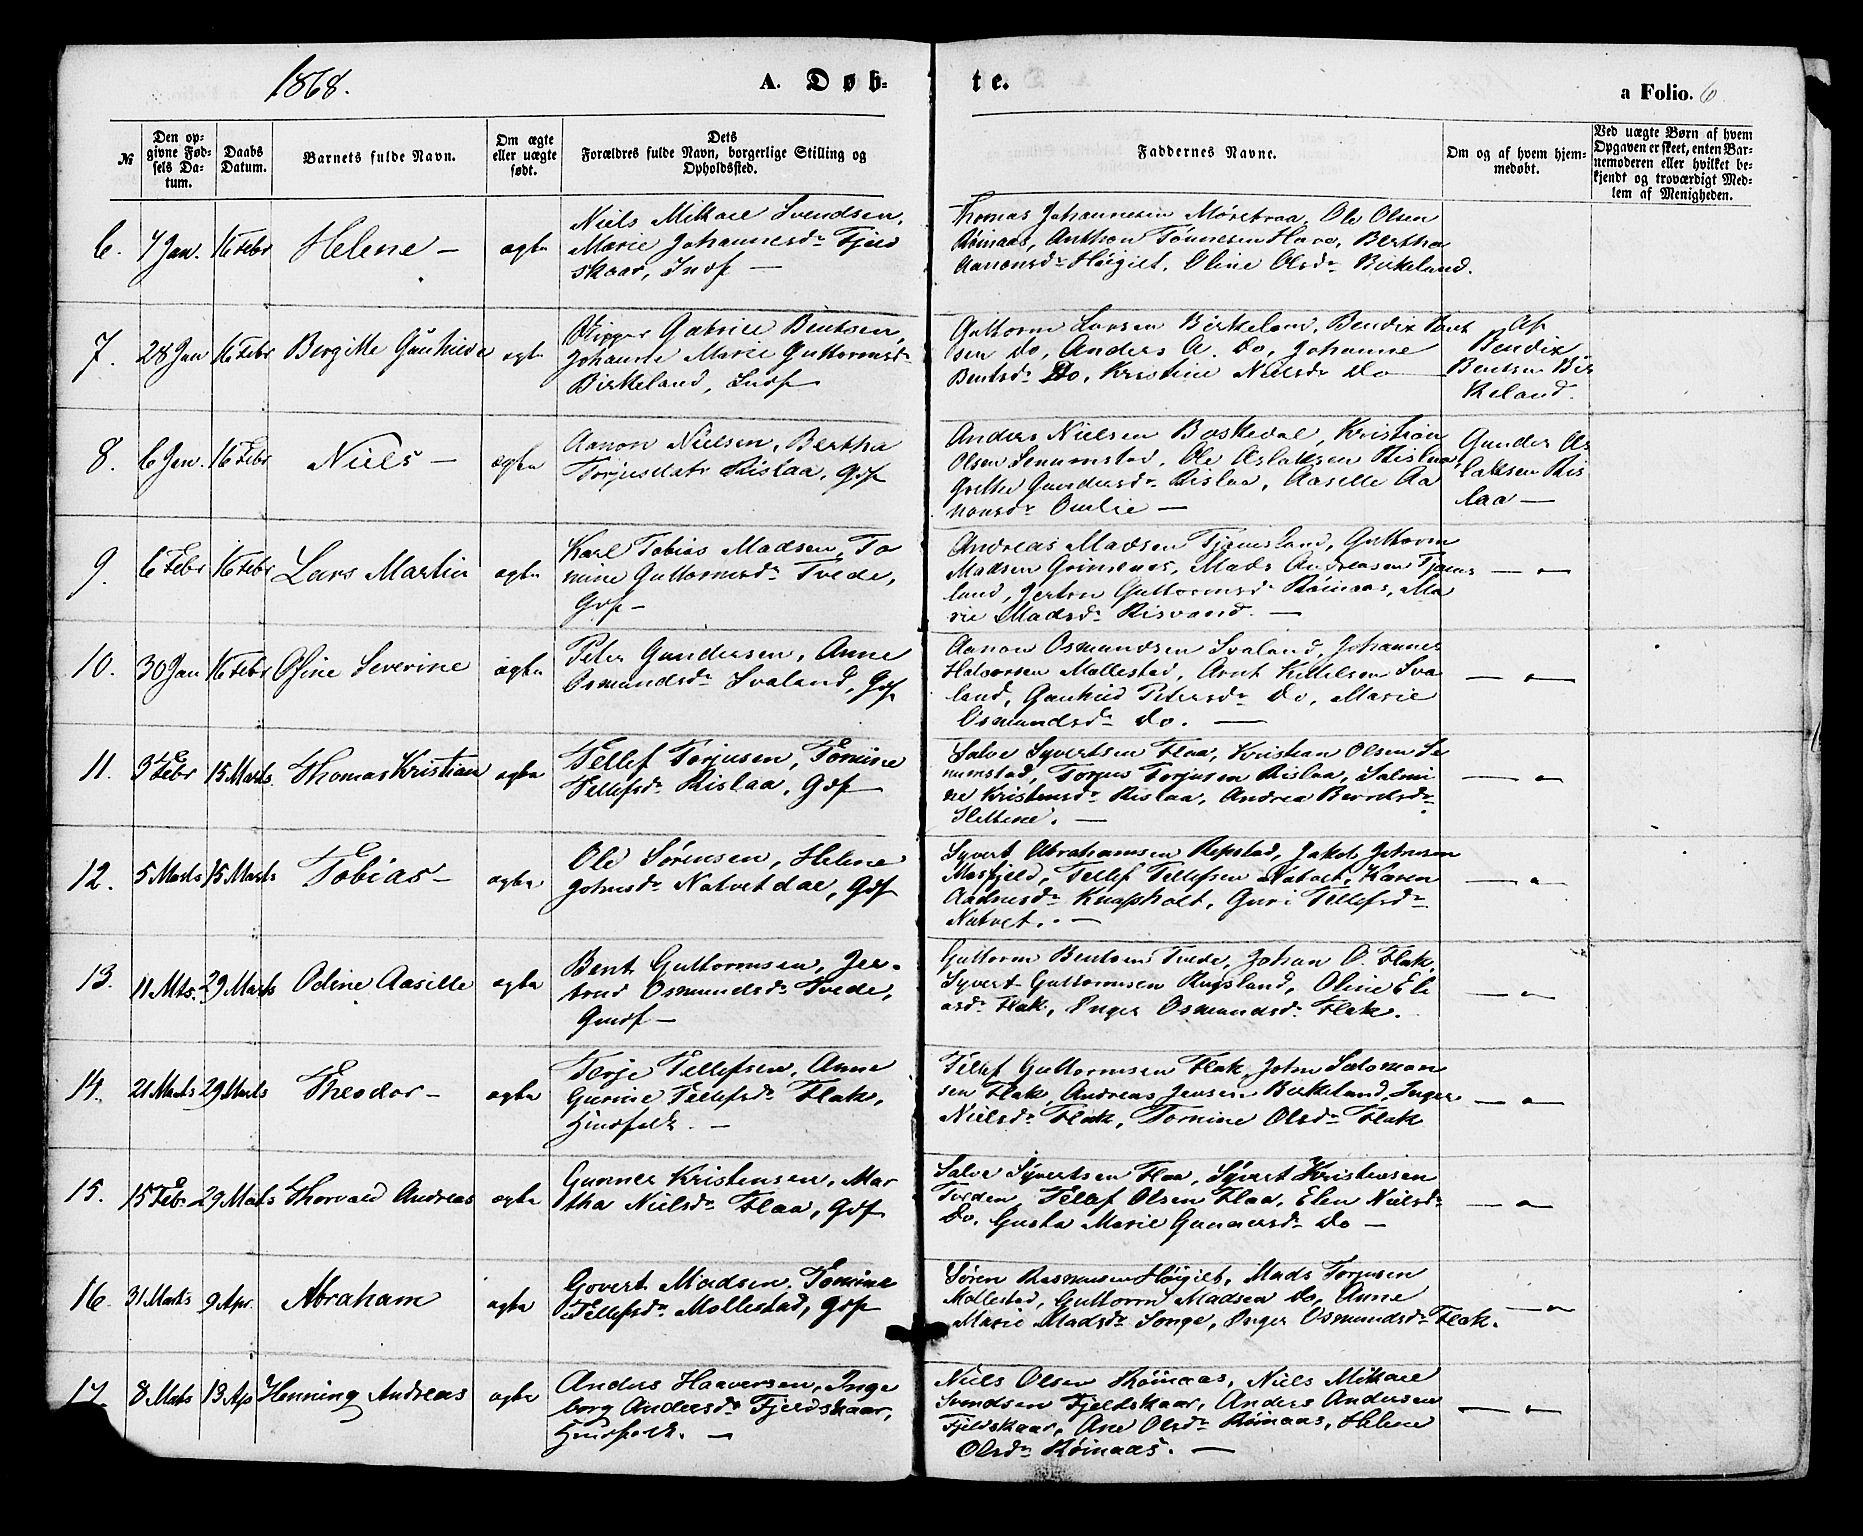 1868.
A. Døb-
te.
a Folio. 6
№
Den op-
givne Fød-
sels Da-
tum.
Daabs
Datum.
Barnets fulde Navn.
Om ægte
eller uægte
født.
Dets
Forældres fulde Navn, borgerlige Stilling og
Opholdssted.
Faddernes Navne.
Om og af hvem hjem-
medøbt.
Ved uægte Børn af hvem
Opgaven er skeet, enten Bar-
nemoderen eller hvilket be-
kjendt og troværdigt Med-
lem af Menigheden.
6. 7 Jan. 16 Febr Helene – ægte
Niels Mikael Svendsen,
Marie Johannesdr Fjeld
skaar, Indf –
Thomas Johannesen Møretraa, Ole Olsen
Røinaas, Anthon Tønnesen Hove, Bertha
Aanonsdr Høigilt, Oline Olsdr Birkeland.
7. 28 Jan 16 Febr Bergitte Gunhilde ægte
Gabriel Bentsen,
Johanne Marie Guttormsdr
Birkeland, Indf
Guttorm Larsen Birkeland, Bendix Bent
sen Do, Anders A. Do, Johanne
Bentsdr Do, Kristine Nielsdr Do
Af
Bendix
Bentsen Bir
keland.
8. 6 Jan. 16 Febr Niels – ægte
Aanon Nielsen, Bertha
Torjusdatr Rislaa, Gdf
Anders Nielsen Boskedal, Kristian
Olsen Senumstad, Ole Aslaksen Rislaa,
Grethe Gundersdr Rislaa, Aasille Aa
nonsdr Omlie –
Gunder As
laksen Ris
laa –
9. 6 Febr 16 Febr Lars Martin ægte
Karl Tobias Madsen, To
mine Guttormsdr Tvede,
Gdf –
Andreas Madsen Tjønnsland, Guttorm
Madsen Grimenes, Mads Andreasen Tjøns
land, Jerton Guttormsd Røinaas, Ma
rie Madsdr Risvand. –
– " –
10. 30 Jan 16 Febr Oline Severine ægte
Peter Gundersen, Anne
Osmundsdr Svaland, Gdf
Aanon Osmundsen Svaland, Johannes
Halvorsen Mollestad, Arnt Kittelsen Sva
land, Gunhild Petersdr Do, Marie
Osmundsdr Do. –
– " –
11. 3 Febr 15 Marts. Thomas Kristian ægte
Tellef Torjusen, Tomine
Tellefsdr Rislaa, Gdf
Salve Syvertsen Flaa, Kristian Olsen Se
numstad, Torjus Torjusen Rislaa, Salmi
ne Kristensdr Rislaa, Andrea Berntsdr
–
– " –
12. 5 Marts 15 Marts Tobias – ægte
Ole Sørensen, Helene
Johnsdr Natvetdal, Gdf
Syvert Abrahamsen Repstad, Jakob Johnsen
Mosfjeld, Tellef Tellefsen Natvet, Karen
Aadnesdr Knapholt, Guri Tellefsdr
Natvet. –
– " –
13. 11 Mts. 29 Marts Odine Aasille ægte
Bent Guttormsen, Jer-
trud Osmundsdr Tvede,
Gmdf –
Guttorm Bentsen Tvede, Johan O. Flak,
Syvert Guttormsen Rugsland, Oline Eli
asdr Flak, Inger Osmundsdr Flak.
– " –
14. 21 Marts 29 Marts Theodor – ægte
Terje Tellefsen, Anne
Gurine Tellefsdr Flak,
Huusfolk. –
Tellef Guttormsen Flak, John Salomon
sen Flak, Andreas Jensen Birkeland, Inger
Nielsdr Flak, Tomine Olsdr Flak
– " –
15. 15 Febr. 29 Marts Thorvald Andreas ægte
Gunner Kristensen, Mar
tha Nielsdr Flaa, Gdf
Salve Syvertsen Flaa, Syvert Kristensen
Tveden, Tellef Olsen Flaa, Elen Nielsdr
Do, Gusta Marie Gunnersdr Do –
– " –
16. 31 Marts 9 Apr. Abraham ægte
Govert Madsen, Tomine
Tellefsdr Mollestad, Gdf
Søren Rasmussen Høigilt, Mads Torjusen
Mollestad, Guttorm Madsen Do, Anne
Marie Madsdr Songe, Inger Osmundsdr Flak.
– " –
17. 8 Marts 13 Apr Henning Andreas ægte
Anders Haaversen, Inge
borg Andersdr Fjeldskaar,
Huusfolk. –
Niels Olsen Røinaas, Niels Mikael
Svendsen Fjeldskaar, Anders Andersen
Fjeldskaar, Ane Olsdr Røinaas, Helene
Olsdr Røinaas. –
– " –